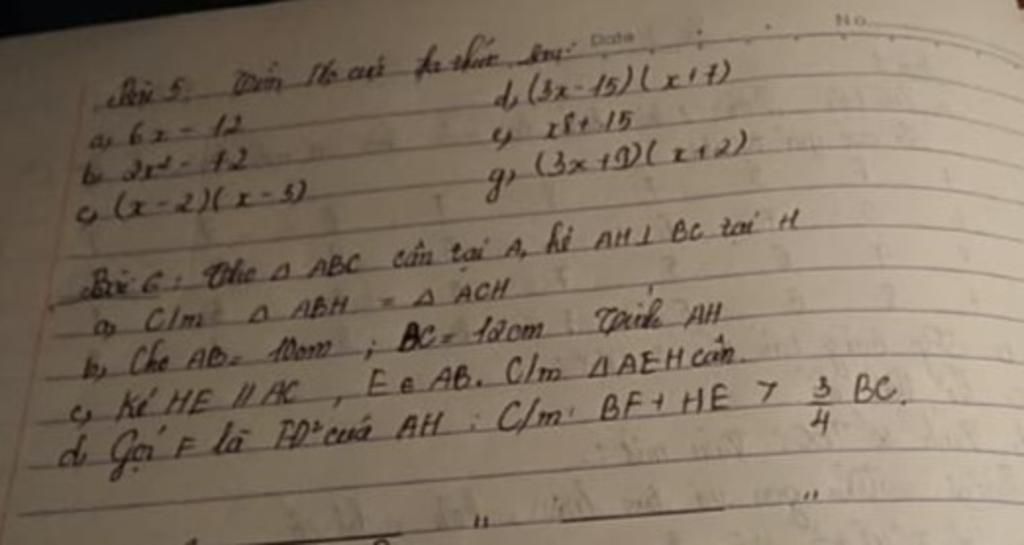 No.
Date
Bài 5: Tìm No của đa thức sau:
a, 6x - 12
d, (3x-15)(x+7)
b, 2x² - 72
e, x⁸ + 15
c, (x-2)(x-3)
g, (3x+9)(x+2)
Bài 6: Cho Δ ABC cân tại A, kẻ AH ⊥ BC tại H
a, C/m Δ ABH = Δ ACH
b, Cho AB = 10cm ; BC = 12cm Tính AH
c, Kẻ HE // AC , E ∈ AB. C/m ΔAEH cân.
d, Gọi F là TĐ² của AH : C/m: BF + HE > 3/4 BC.